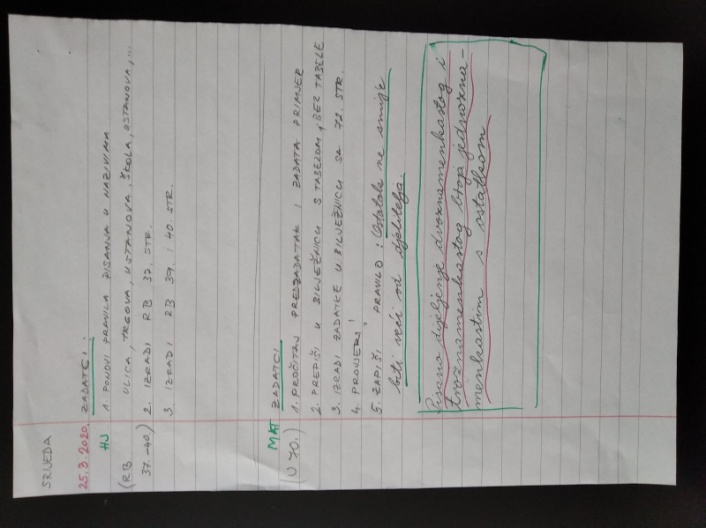 SRIJEDA
25.3.2020. ZADATCI:
HJ 1. PONOVI PRAVILA PISANJA U NAZIVIMA
(RB ULICA, TRGOVA, USTANOVA, ŠKOLA, USTANOVA,...
37.-40.) 2. IZRADI RB 37. STR.
3. IZRADI RB 39. I 40. STR.
MAT ZADATCI
(U 70.) 1. PROČITAJ PREDZADATAK I ZADATA PRIMJER
2. PREPIŠI U BILJEŽNICU S TABELOM, BEZ TABELE
3. IZRADI ZADATKE U BILJEŽNICU SA 72. STR.
4. PROVJERI!
5. ZAPIŠI PRAVILO: Ostatak ne smije
biti veći od djelitelja.
Pisano dijeljenje dvoznamenkastog i
troznamenkastog broja jednozna-
menkastim s ostatkom